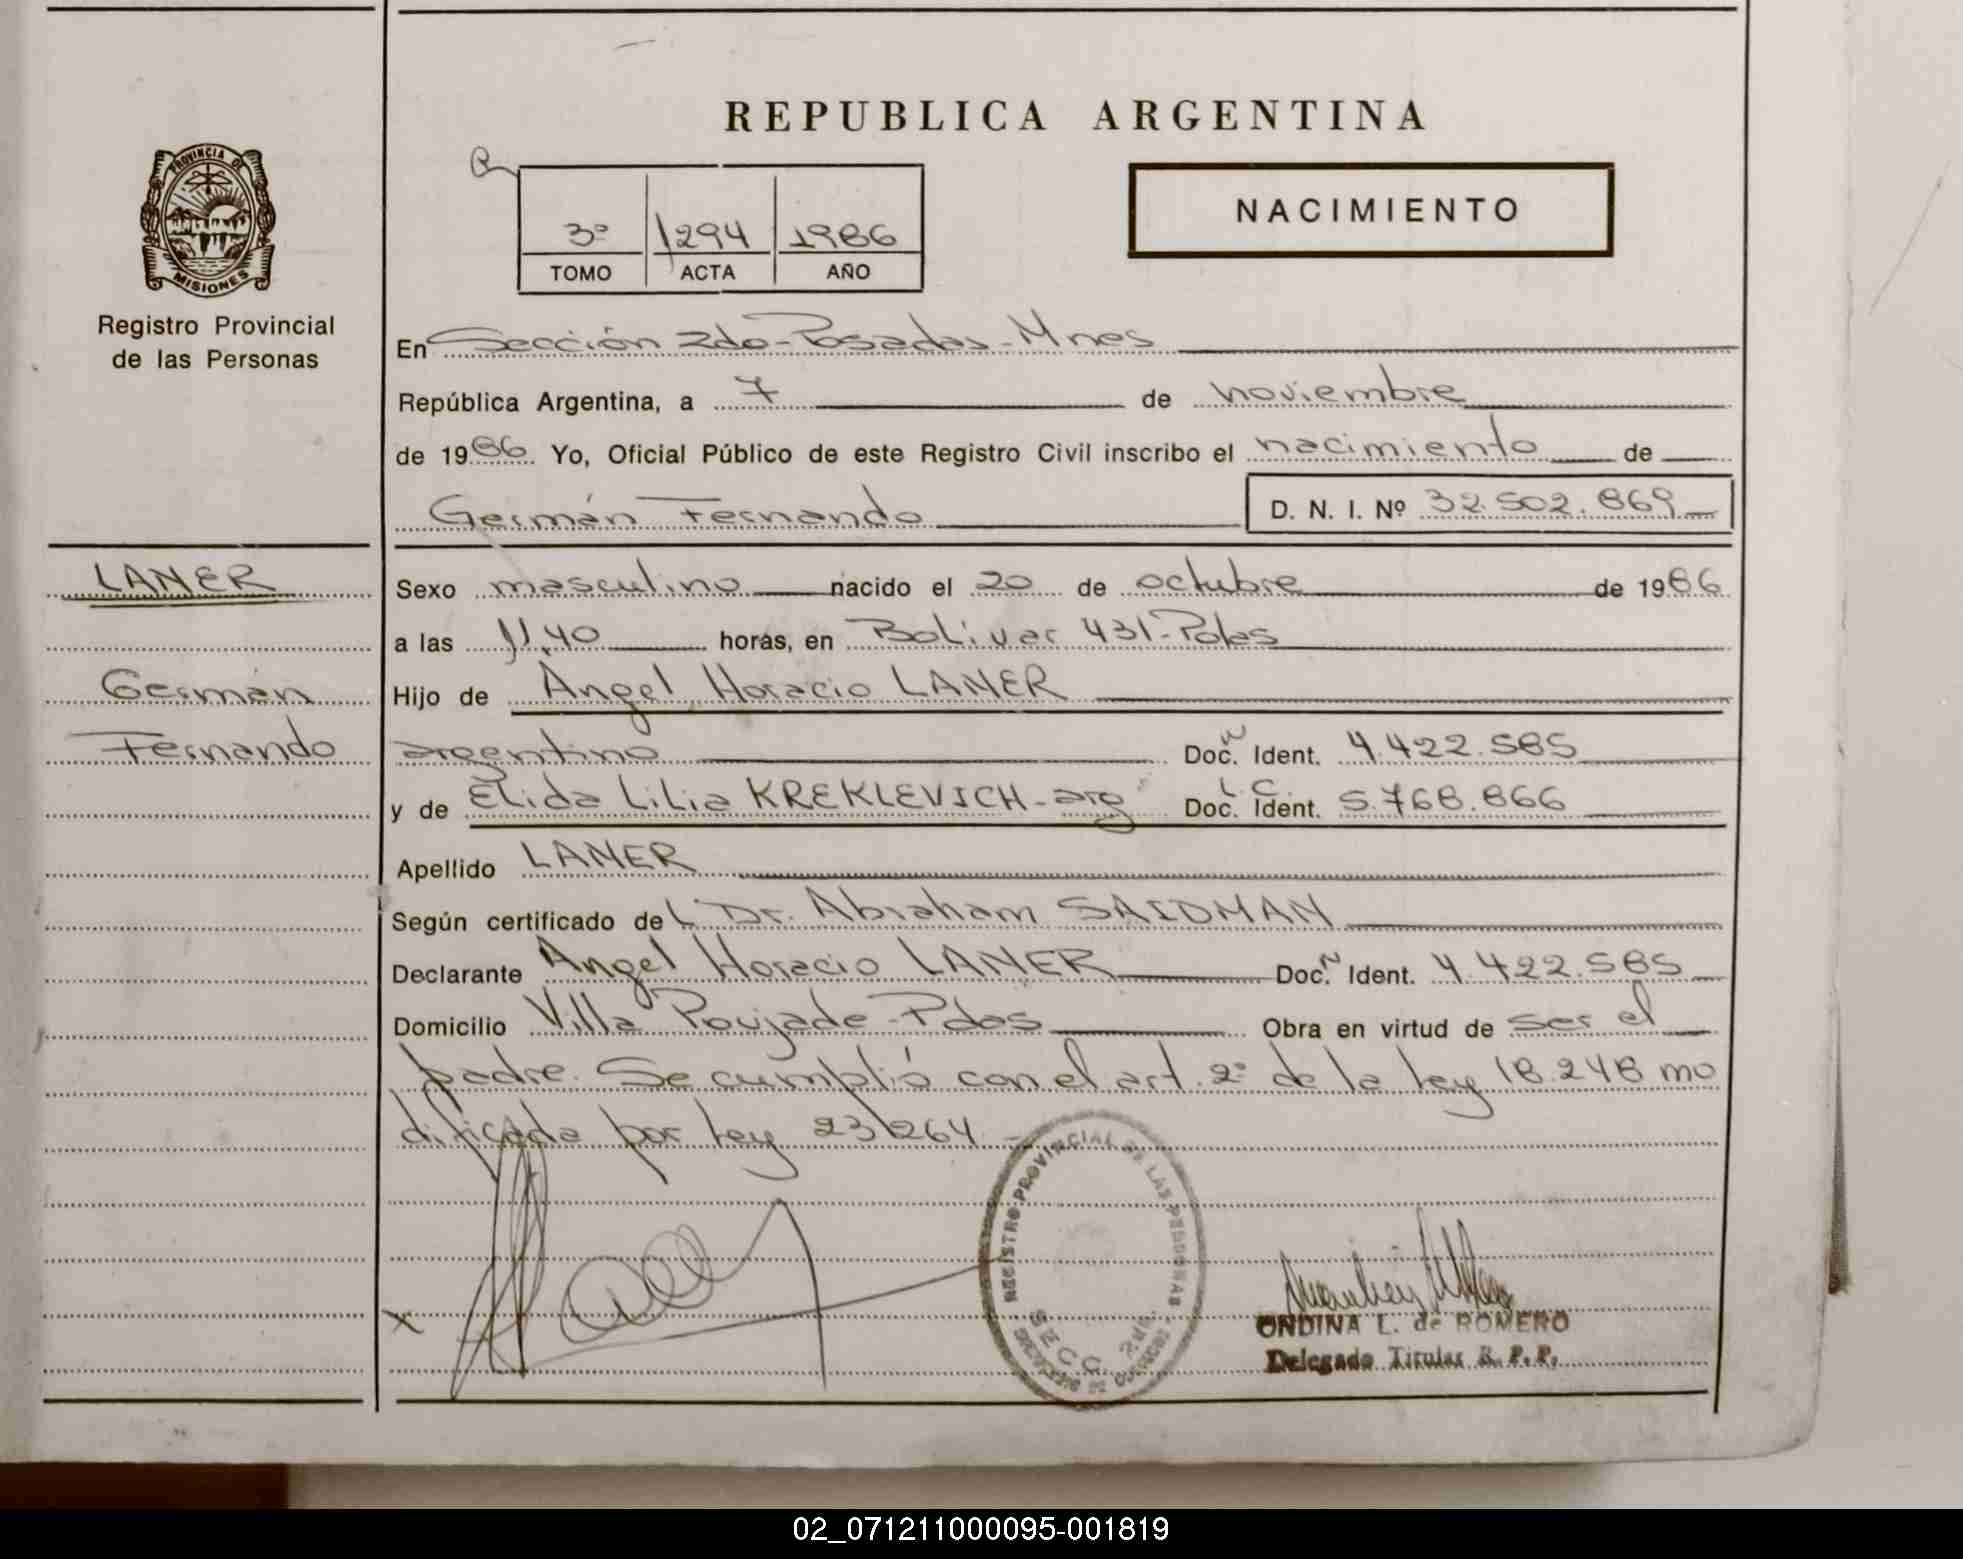 REPUBLICA ARGENTINA
PROVINCIA DE
MISIONES
Registro Provincial
de las Personas
3º 1294 1986
TOMO ACTA AÑO
NACIMIENTO
En Sección 2do-Posadas-Mnes
República Argentina, a 7 de noviembre
de 1986 Yo, Oficial Público de este Registro Civil inscribo el nacimiento de
Germán Fernando D. N. I. Nº 32.502.869
LANER
Germán
Fernando
Sexo masculino nacido el 20 de octubre de 1986
a las 11,40 horas, en Bolívar 431-Pdas
Hijo de Angel Horacio LANER
argentino Doc. Ident. 4.422.585
y de Elida Lilia KREKLEVICH-arg L.C. Doc. Ident. 5.768.866
Apellido LANER
Según certificado del Dr. Abraham SAIDMAN
Declarante Angel Horacio LANER Doc. Ident. 4.422.585
Domicilio Villa Poujade-Pdas Obra en virtud de ser el
padre. Se cumplió con el art. 2º de la ley 18.248 mo
dificada por ley 23264
REGISTRO PROVINCIAL DE LAS PERSONAS
SECC. 2da
ONDINA L. de ROMERO
Delegado Titular R. P. P.
02_071211000095-001819